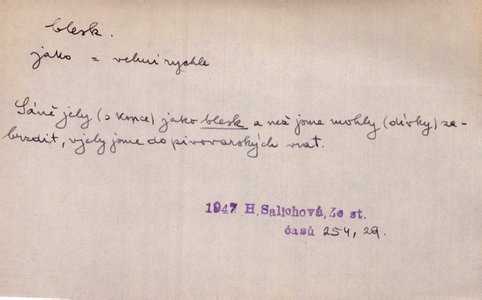 blesk.
jako = velmi rychle
Sáně jely (s kopce) jako blesk a než jsme mohly (dívky) za-
brzdit, vjely jsme do pivovarských vrat.
1947 H. Salichová, Ze st.
časů 254, 29.